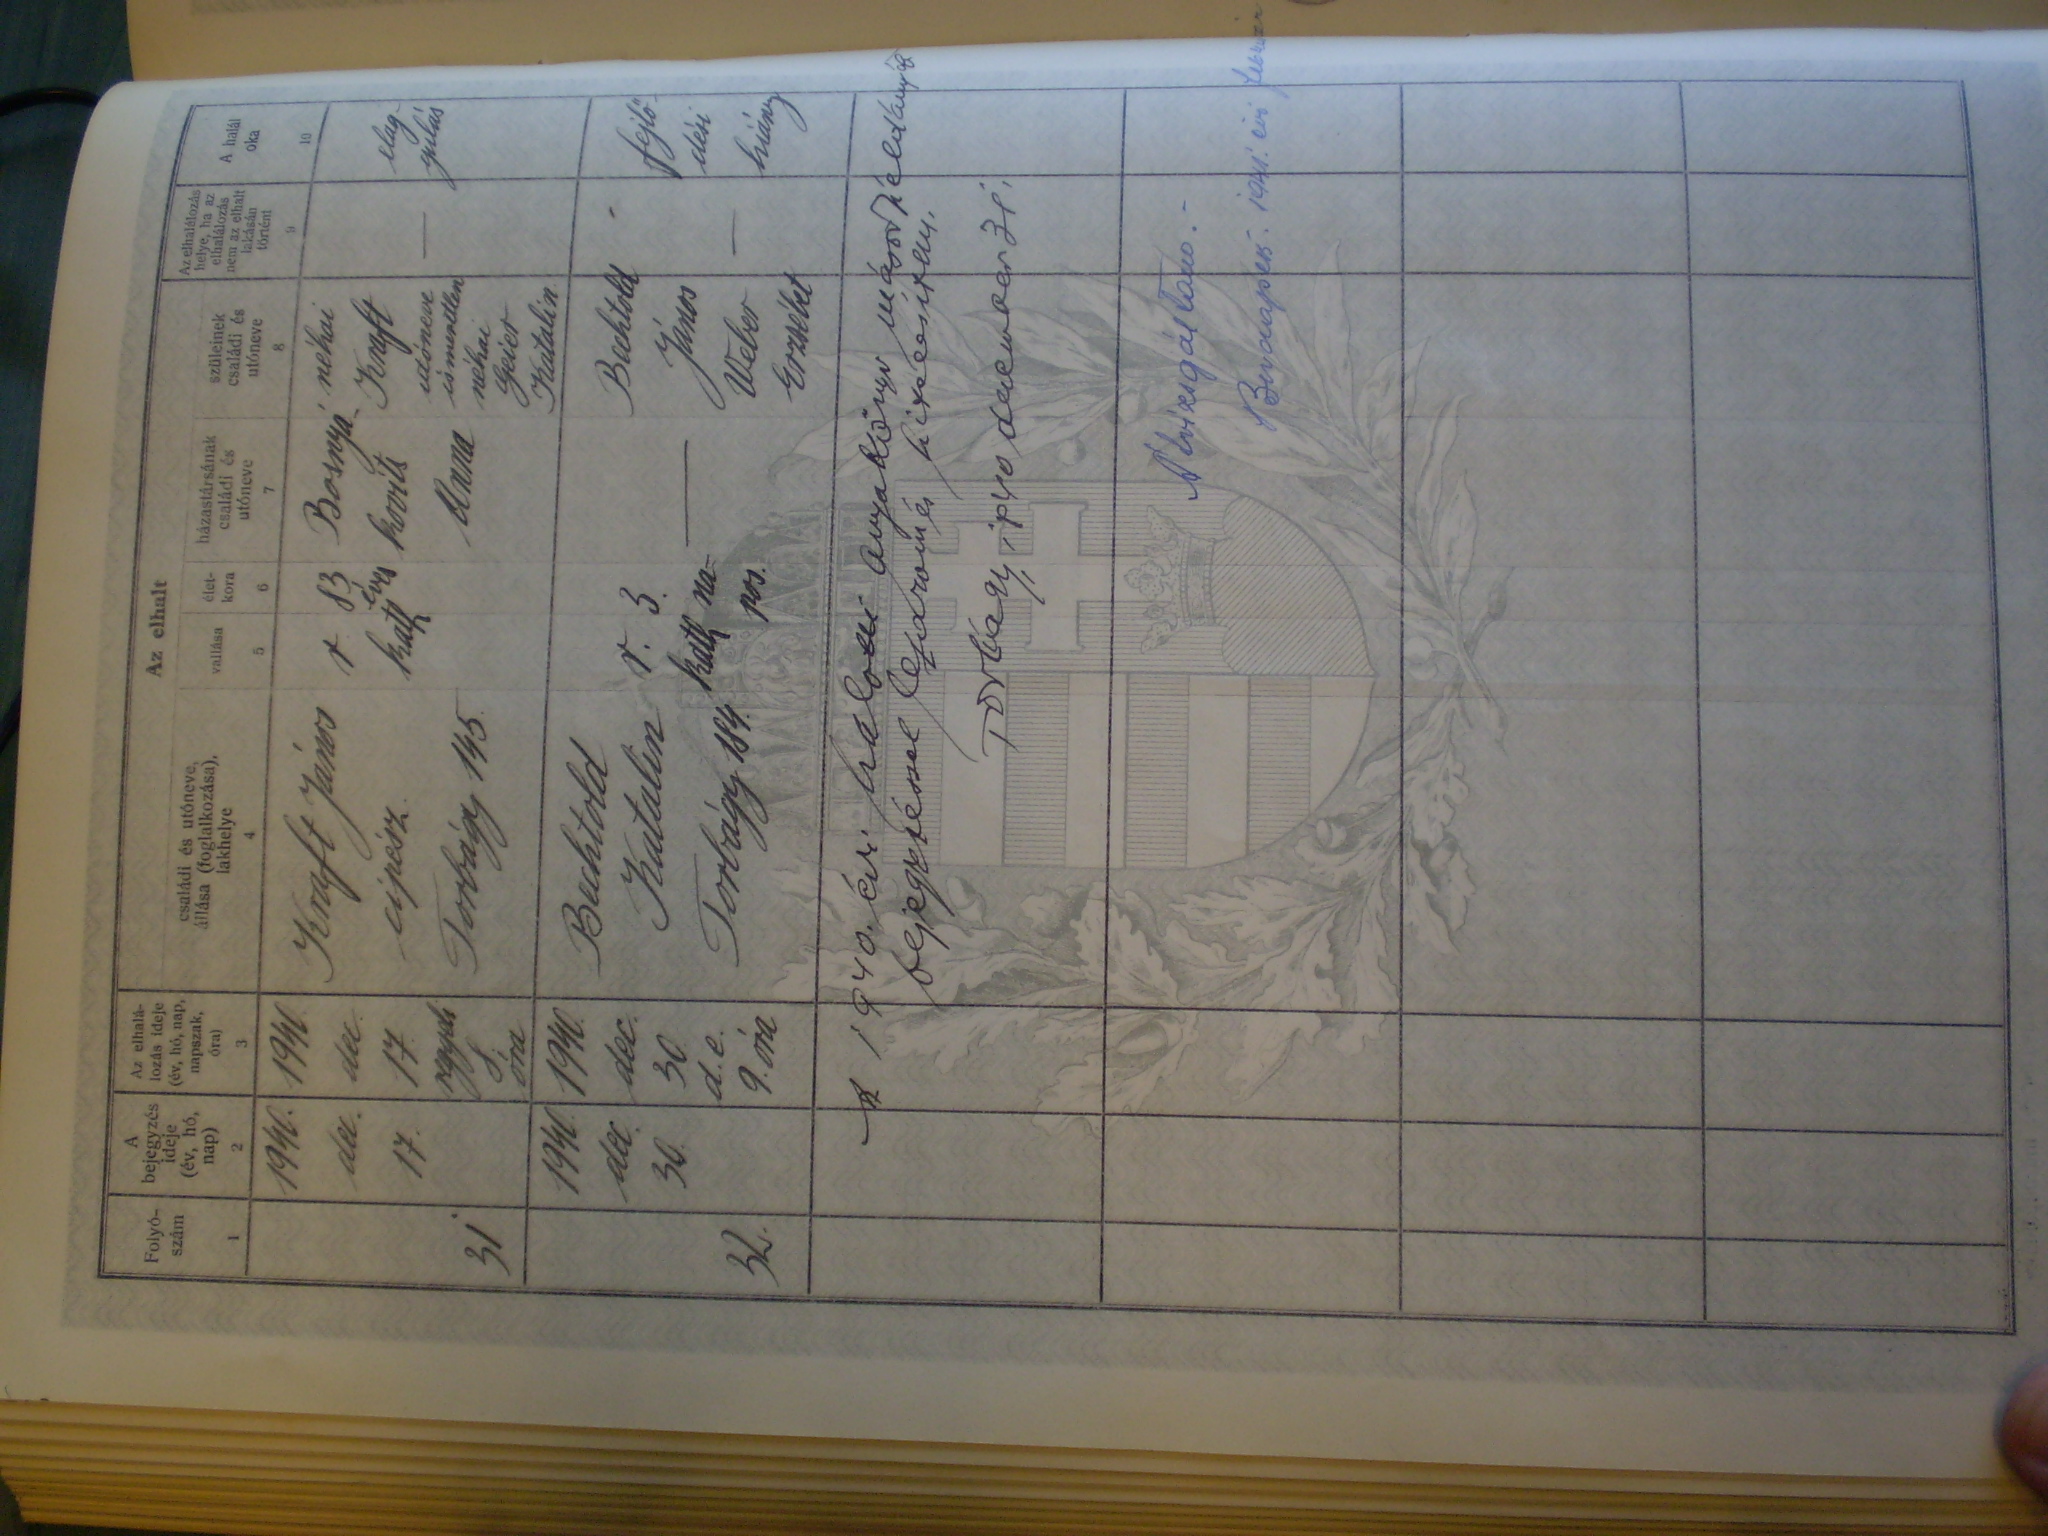 Folyó-
szám
A
bejegyzés
ideje
(év, hó,
nap)
Az elhalá-
lozás ideje
(év, hó, nap,
napszak,
óra)
Az elhalt
családi és utóneve,
állása (foglalkozása),
lakhelye
vallása
élet-
kora
házastársának
családi és
utóneve
szüleinek
családi és
utóneve
Az elhalálozás
helye, ha az
elhalálozás
nem az elhalt
lakásán
történt
A halál
oka
1
2
3
4
5
6
7
8
9
10
31
1940.
dec.
17.
1940.
dec.
17.
reggeli
8
óra
Kraft János
cipész
Torbágy 145.
r.
kath
83
éves
Bosnyá-
kovits
Anna
néhai
Kraft
utóneve
ismeretlen
néhai
Geier
Katalin
—
elag-
gulás
32.
1940.
dec.
30.
1940.
dec.
30.
d. e.
9. óra
Bechtold
Katalin
Torbágy 184.
r.
kath
3.
na-
pos.
—
Bechtold
János
Weber
Erzsébet
—
fejlő-
dési
hiány
Az 1940. évi halotti anyakönyv másodpéldányát
bejegyzéssel lezárom és hitelesítem.
Torbágy, 1940 december 31.
Átvizsgáltam. -
Budapest. 1941. évi